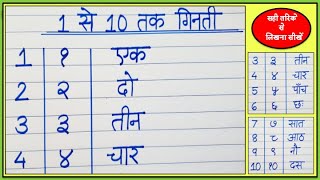 1 से 10 तक गिनती
1 १ एक
2 २ दो
3 ३ तीन
4 ४ चार
सही तरिके
से
लिखना सीखें
3 ३ तीन
4 ४ चार
5 ५ पाँच
6 ६ छः
7 ७ सात
8 ८ आठ
9 ९ नौ
10 १० दस